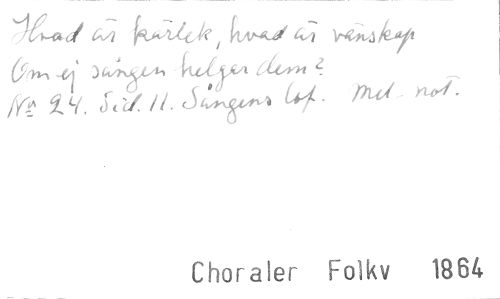 Hvad är kärlek, hvad är vänskap
Om ej sången helgar dem?
No 24. Sid. 11. Sångens lof. Mel. not.
Choraler Folkv 1864